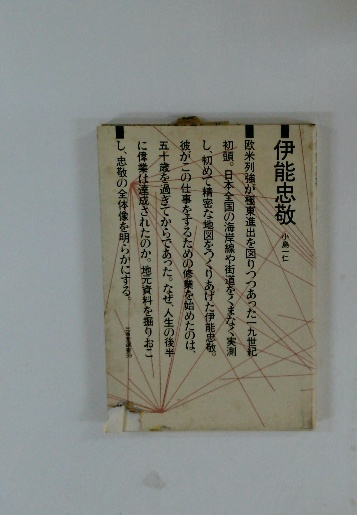 伊能忠敬
小島一仁
欧米列強が極東進出を図りつつあった一九世紀
初頭。日本全国の海岸線や街道をくまなく実測
し、初めて精密な地図をつくりあげた伊能忠敬。
彼がこの仕事をするための修業を始めたのは、
五十歳を過ぎてからであった。なぜ、人生の後半
に偉業は達成されたのか。地元資料を掘りおこ
し、忠敬の全体像を明らかにする。